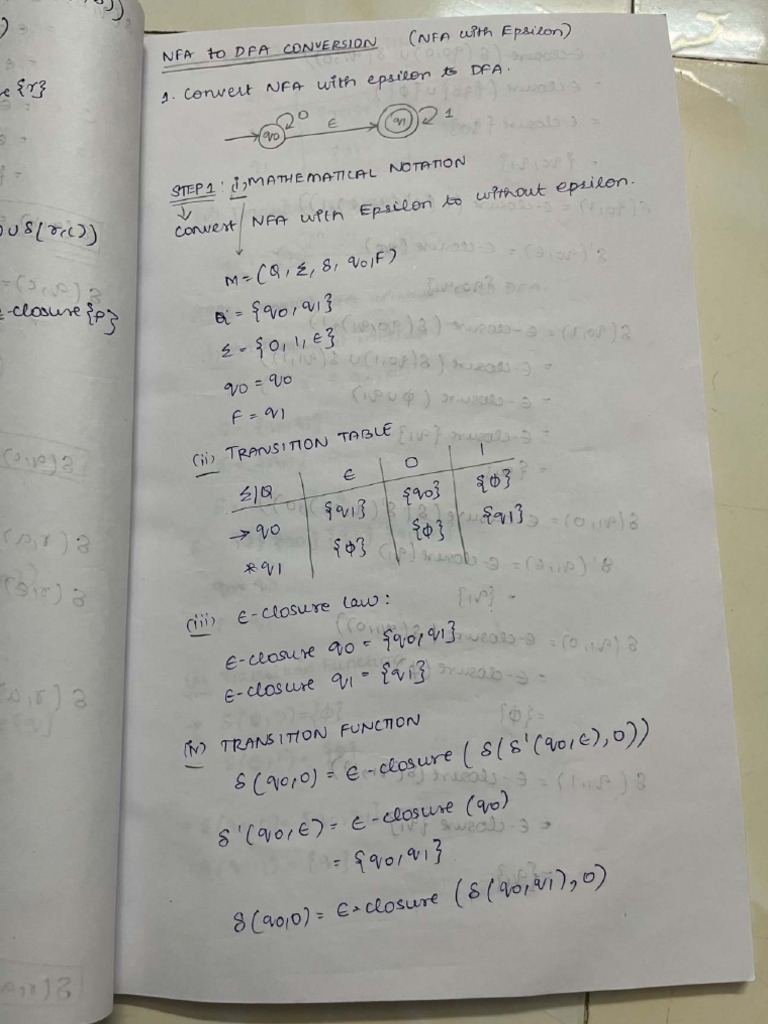 NFA to DFA CONVERSION (NFA with Epsilon)
1. Convert NFA with epsilon to DFA.
q0 0 ε q1 1
STEP1: i, MATHEMATICAL NOTATION
convert NFA with Epsilon to without epsilon.
M = (Q, Σ, δ, q0, F)
Q = {q0, q1}
Σ = {0, 1, ε}
q0 = q0
F = q1
(ii) TRANSITION TABLE
Σ|Q ε 0 1
→q0 {q1} {q0} {ϕ}
*q1 {ϕ} {ϕ} {q1}
(iii) ε-closure law:
ε-closure q0 = {q0, q1}
ε-closure q1 = {q1}
(iv) TRANSITION FUNCTION
δ(q0,0) = ε-closure (δ(δ'(q0,ε),0))
δ'(q0,ε) = ε-closure (q0)
= {q0, q1}
δ(q0,0) = ε-closure (δ(q0,q1),0)
{r}
∪ δ(r,c))
-closure {p}